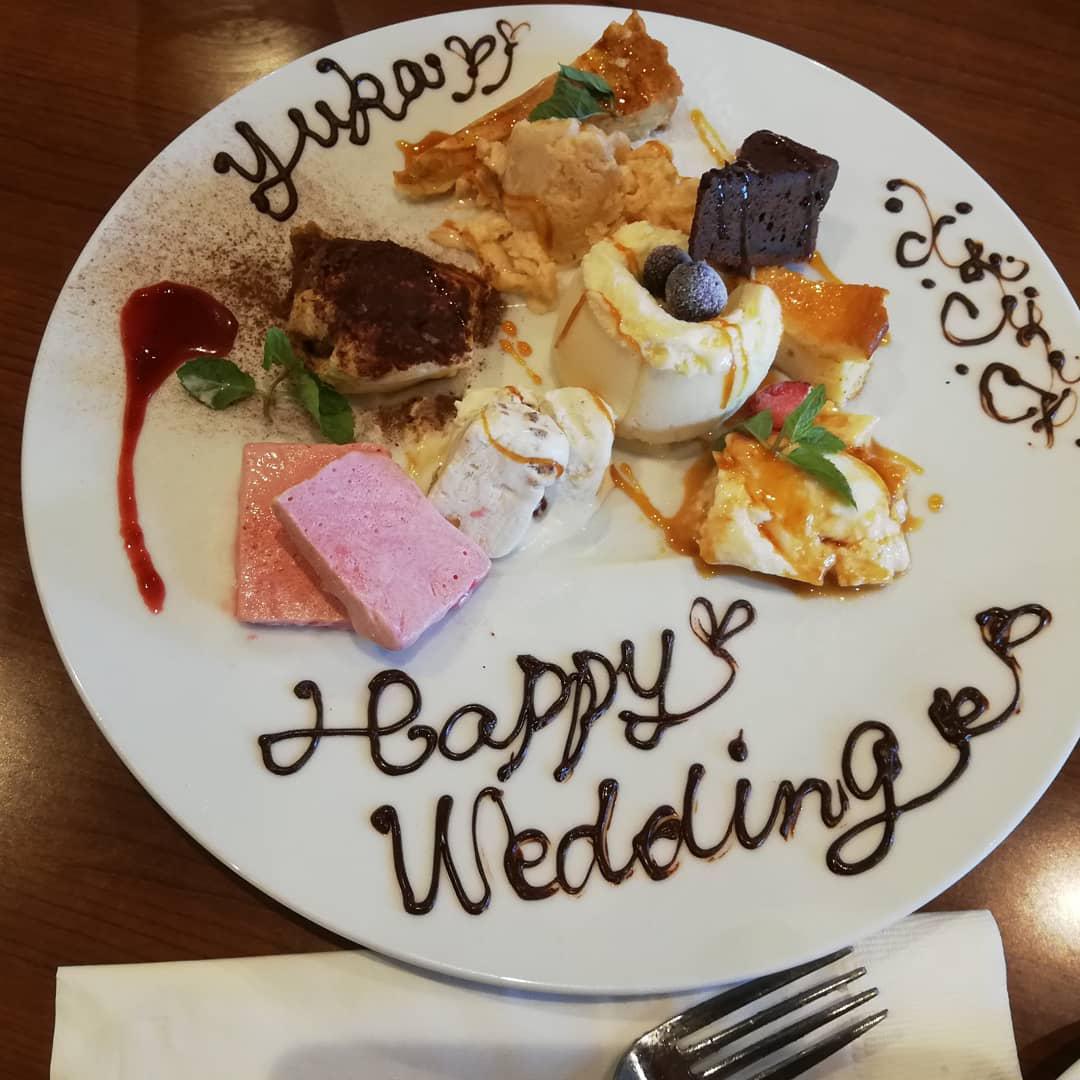 Yuka
Happy
Wedding